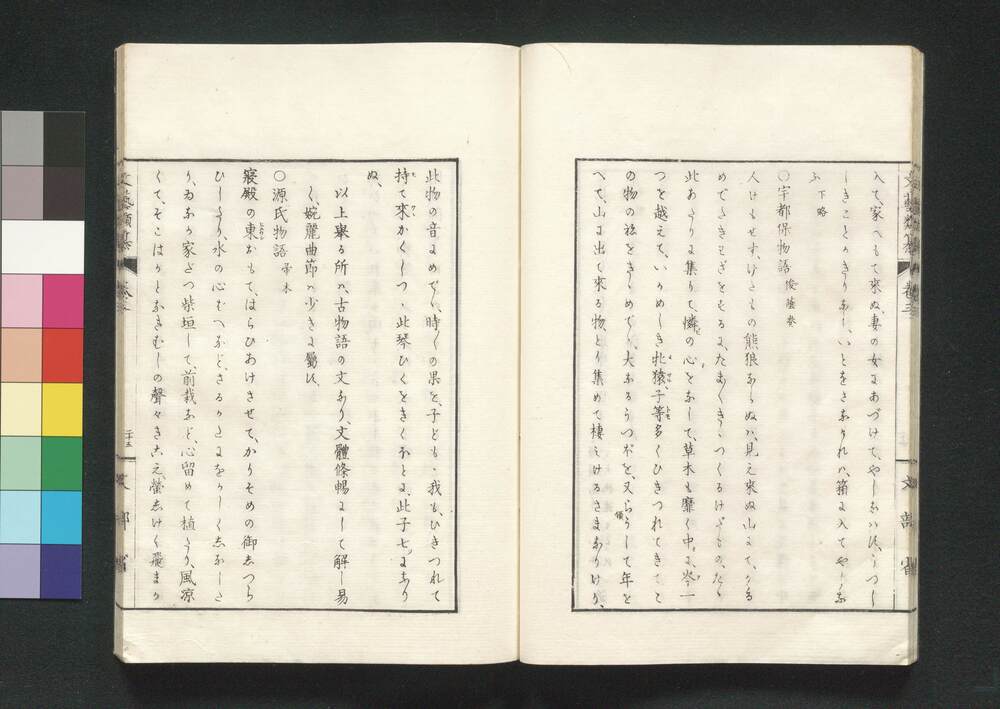 入て、家へもて來ぬ、妻の女にあづけて、やしなはす、うつくし
きことかぎりなし、いとをさなければ、箱に入てやしな
ふ 下略
〇宇都保物語 俊蔭巻
人けもせす、けだもの熊狼ならぬハ、見え來ぬ山にて、かゝる
めでたきわざをするに、たま〱きゝつくるけだもの、たゞ
此あたりに集りて、憐の心をなして、草木も靡く中に、岑一
つを越えて、いかめしき牝猿、子等多くひきつれてきて、こ
の物の ねをきゝめでゝ、大なるうつほを、又らうして年を 領
へて、山に出て來る物、とり集めて棲みけるさまなりけり、
此物の音にめでゝ、時〱の果を、子ども、我も、ひきつれて
持て來かくしつゝ、此琴ひくをきくほとに、此子七になり
ぬ、
以上擧る所ハ、古物語の文なり、文體條暢にして解し易
く、婉麗曲節の少きに屬す、
〇源氏物語 帚木
寢殿の東おもて、はらひあけさせて、かりそめの御しつら
ひしたり、水の心ばへなど、さるかたにをかしくしなした
り、ゐなか家だつ柴垣して、前栽など、心留めて植ゑたり、風凉
くて、そこはかとなきむしの聲々きこえ、螢しけく飛まか
文藝類纂 卷三
文部省
文藝類纂 卷三 二十五
文部省